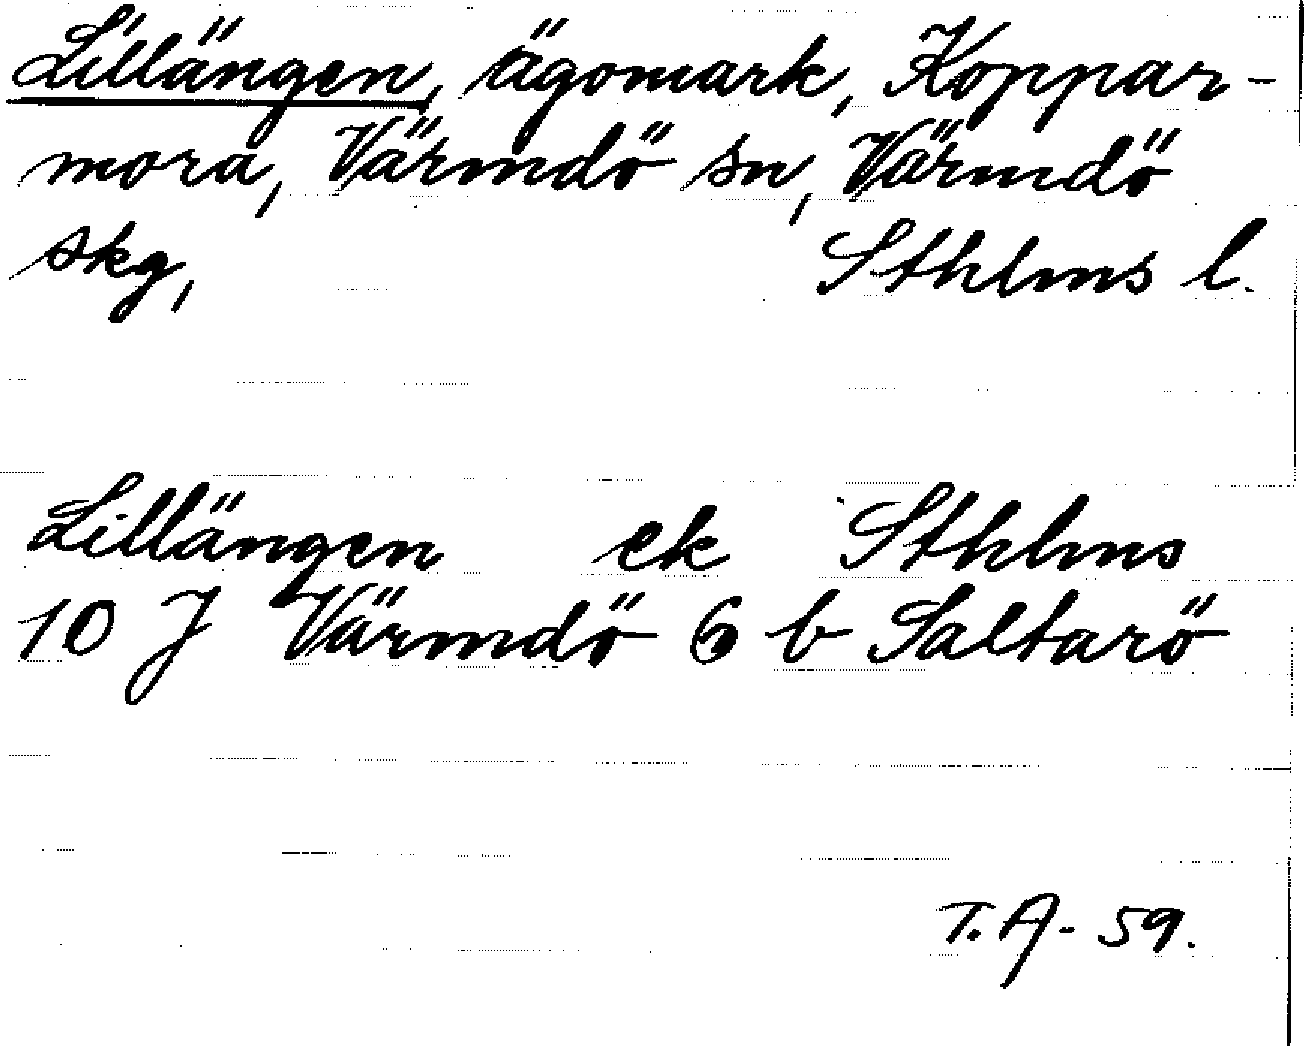 Lillängen, ägomark, Koppar-
mora, Värmdö sn, Värmdö
skg, Sthlms l.
Lillängen ek Sthlms
10 J Värmdö 6 b Saltarö
T.A- 59.